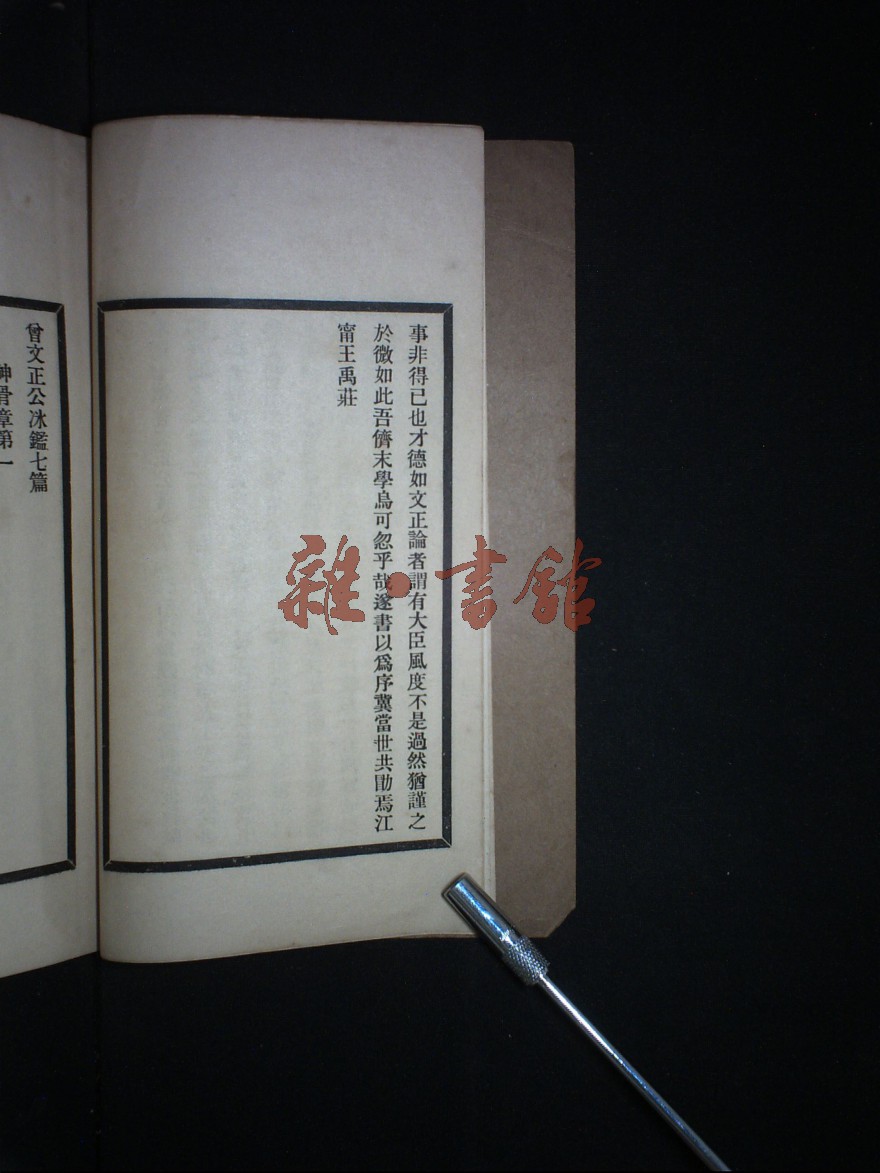 事非得已也才德如文正論者謂有大臣風度不是過然猶謹之
於微如此吾儕末學烏可忽乎哉遂書以爲序冀當世共勖焉江
甯王禹莊
曾文正公冰鑑七篇
神骨章第一
雜·書館